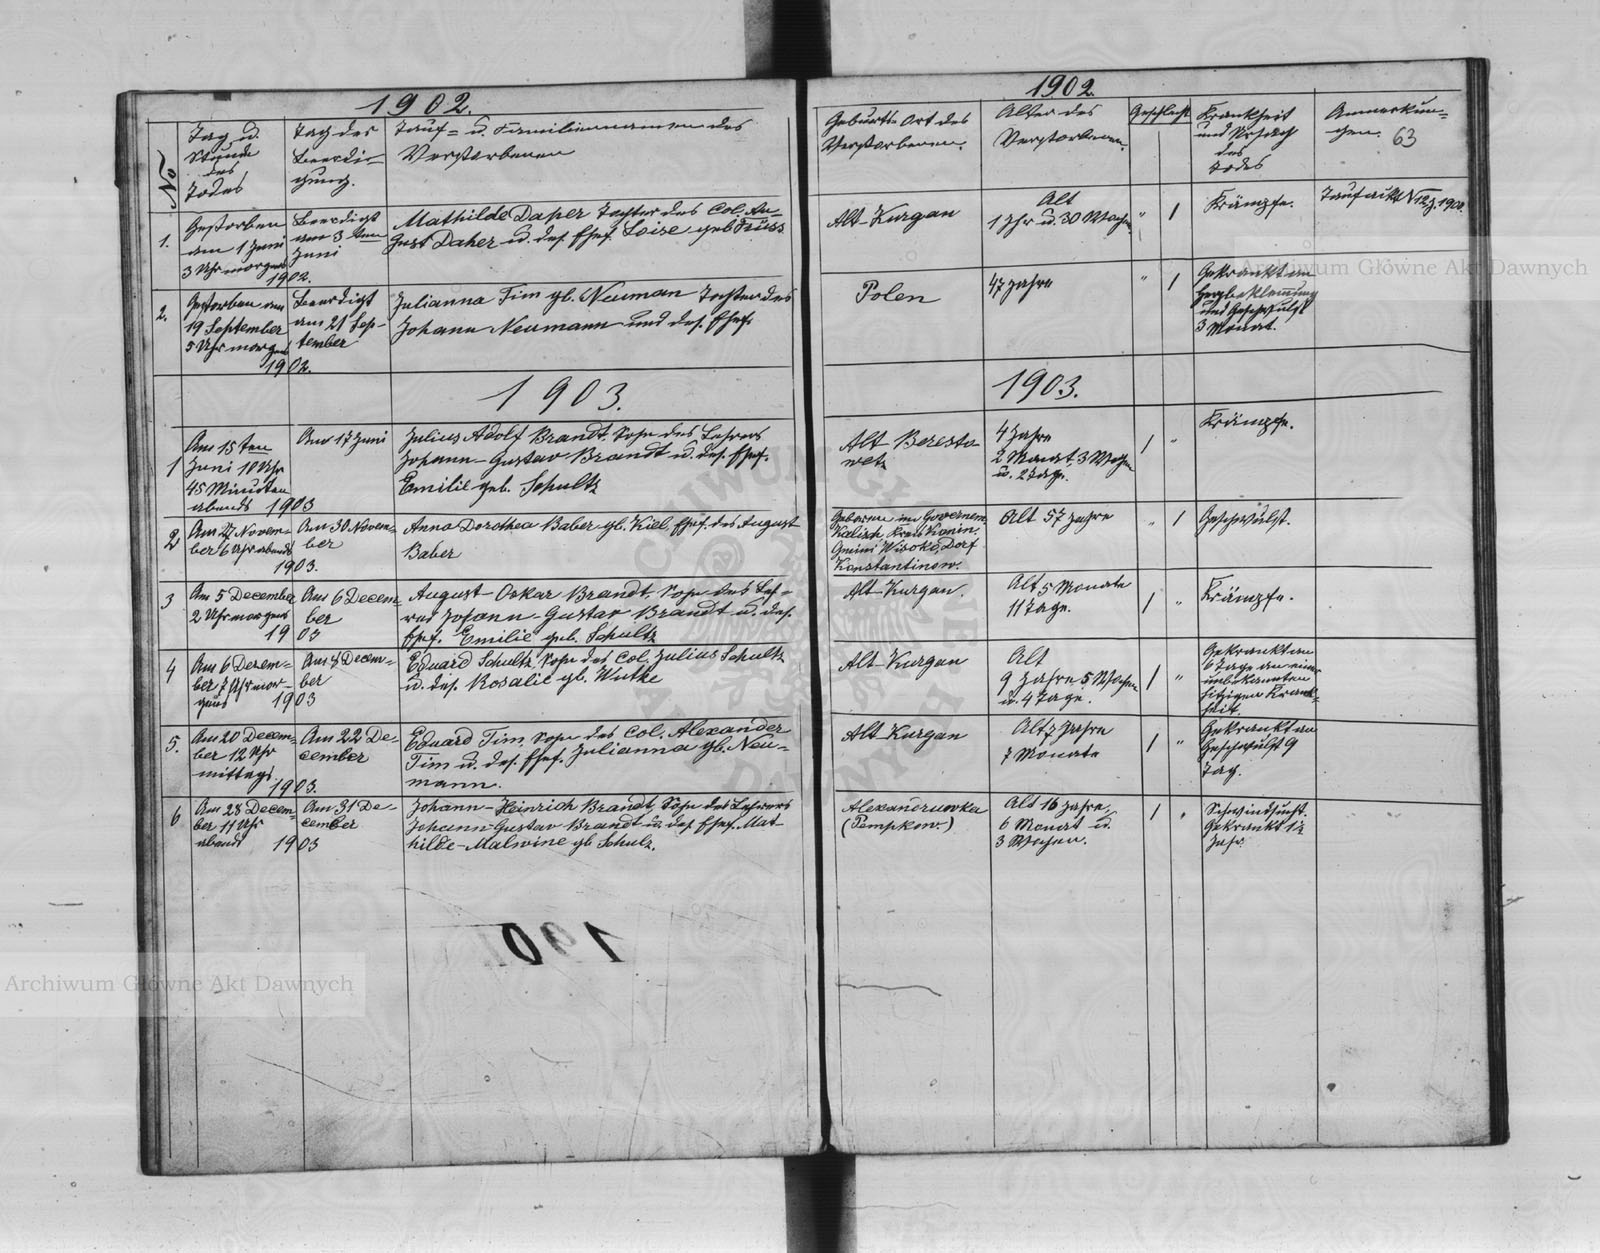 1902.
No
Tag u.
Stunde
des
Todes
Tag der
Beerdi-
gung.
Tauf- u. Familiennamen des
Verstorbenen
1.
Gestorben
am 1 Juni
3 Uhr morgens
1902.
Beerdigt
am 3ten
Juni
Mathilde Daher Tochter des Col. Au-
gust Daher u. des. Ehef. Loise geb.
2.
Gestorben am
19 September
5 Uhr morgens
1902.
Beerdigt
am 21 Sep-
tember
Julianna Tim gb. Neuman Tochter des
Johann Neumann und des. Ehef.
1903.
1
Am 15ten
Juni 10 Uhr
45 Minuten
abends 1903
Am 17 Juni
Julius Adolf Brandt, Sohn des Lehrers
Johann-Gustav Brandt u. des. Ehef.
Emilie geb. Schultz
2
Am 27 Novem-
ber 6 Uhr abends
1903.
Am 30 Novem-
ber
Anna Dorothea Baber gb. Kiel, Ehef. des August
Baber
3
Am 5 December
2 Uhr morgens
1903
Am 6 Decem-
ber
August-Oskar Brandt, Sohn des Leh-
rers Johann-Gustav Brandt u. des.
Ehef. Emilie geb. Schultz
4
Am 6 Decem-
ber 7 Uhr mor-
gens 1903
Am 8 Decem-
ber
Eduard Schultz, Sohn des Col. Julius Schultz
u. des. Rosalie gb. Wutke
5.
Am 20 Decem-
ber 12 Uhr
mittags
1903.
Am 22 De-
cember
Eduard Tim, Sohn des Col. Alexander
Tim u. des. Ehef. Julianna gb. Neu-
mann.
6
Am 28 Decem-
ber 11 Uhr
abends 1903
Am 31 De-
cember
Johann-Heinrich Brandt, Sohn des Lehrers
Johann Gustav Brandt u. des. Ehef. Mat
hilde-Malwine gb Schulz.
1902
Geburts-Ort des
Verstorbenen.
Alter des
Verstorbenen.
Geschlecht
Krankheit
und Ursach
des
Todes
Anmerkun-
gen.
63
Alt-Kurgan
Alt
1 Jhr u. 30 Wochen
" 1
Krämpfe.
Taufackt N 12 J. 1900.
Polen
47 Jahre
" 1
Gekrankt an
Herzbeklemmung
und Geschwulst
3 Monat.
1903.
Alt Beresto
wetz
4 Jahre
2 Monat, 3 Wochen
u. 2 Tage.
1 "
Krämpfe.
Geboren im Governem.
Kalisch, Kreis Konin.
Gmini Wisoke, Dorf
Konstantinow.
Alt 57 Jahre
" 1
Geschwulst.
Alt-Kurgan.
Alt 5 Monate
11 Tage.
1 "
Krämpfe.
Alt-Kurgan
Alt
9 Jahre 5 Wochen
u. 4 Tage.
1 "
Gekrankt an
6 Tage an einer
unbekannten
hitzigen Krank-
heit.
Alt-Kurgan
Alt 2 Jahre
7 Monate
1 "
Gekrankt an
Geschwulst 9
Tag.
Alexandruwka
(Pempkow.)
Alt 16 Jahre,
6 Monat u.
3 Wochen.
1 "
Schwindsucht.
Gekrankt 1½
Jahr.
Archiwum Główne Akt Dawnych
Archiwum Główne Akt Dawnych